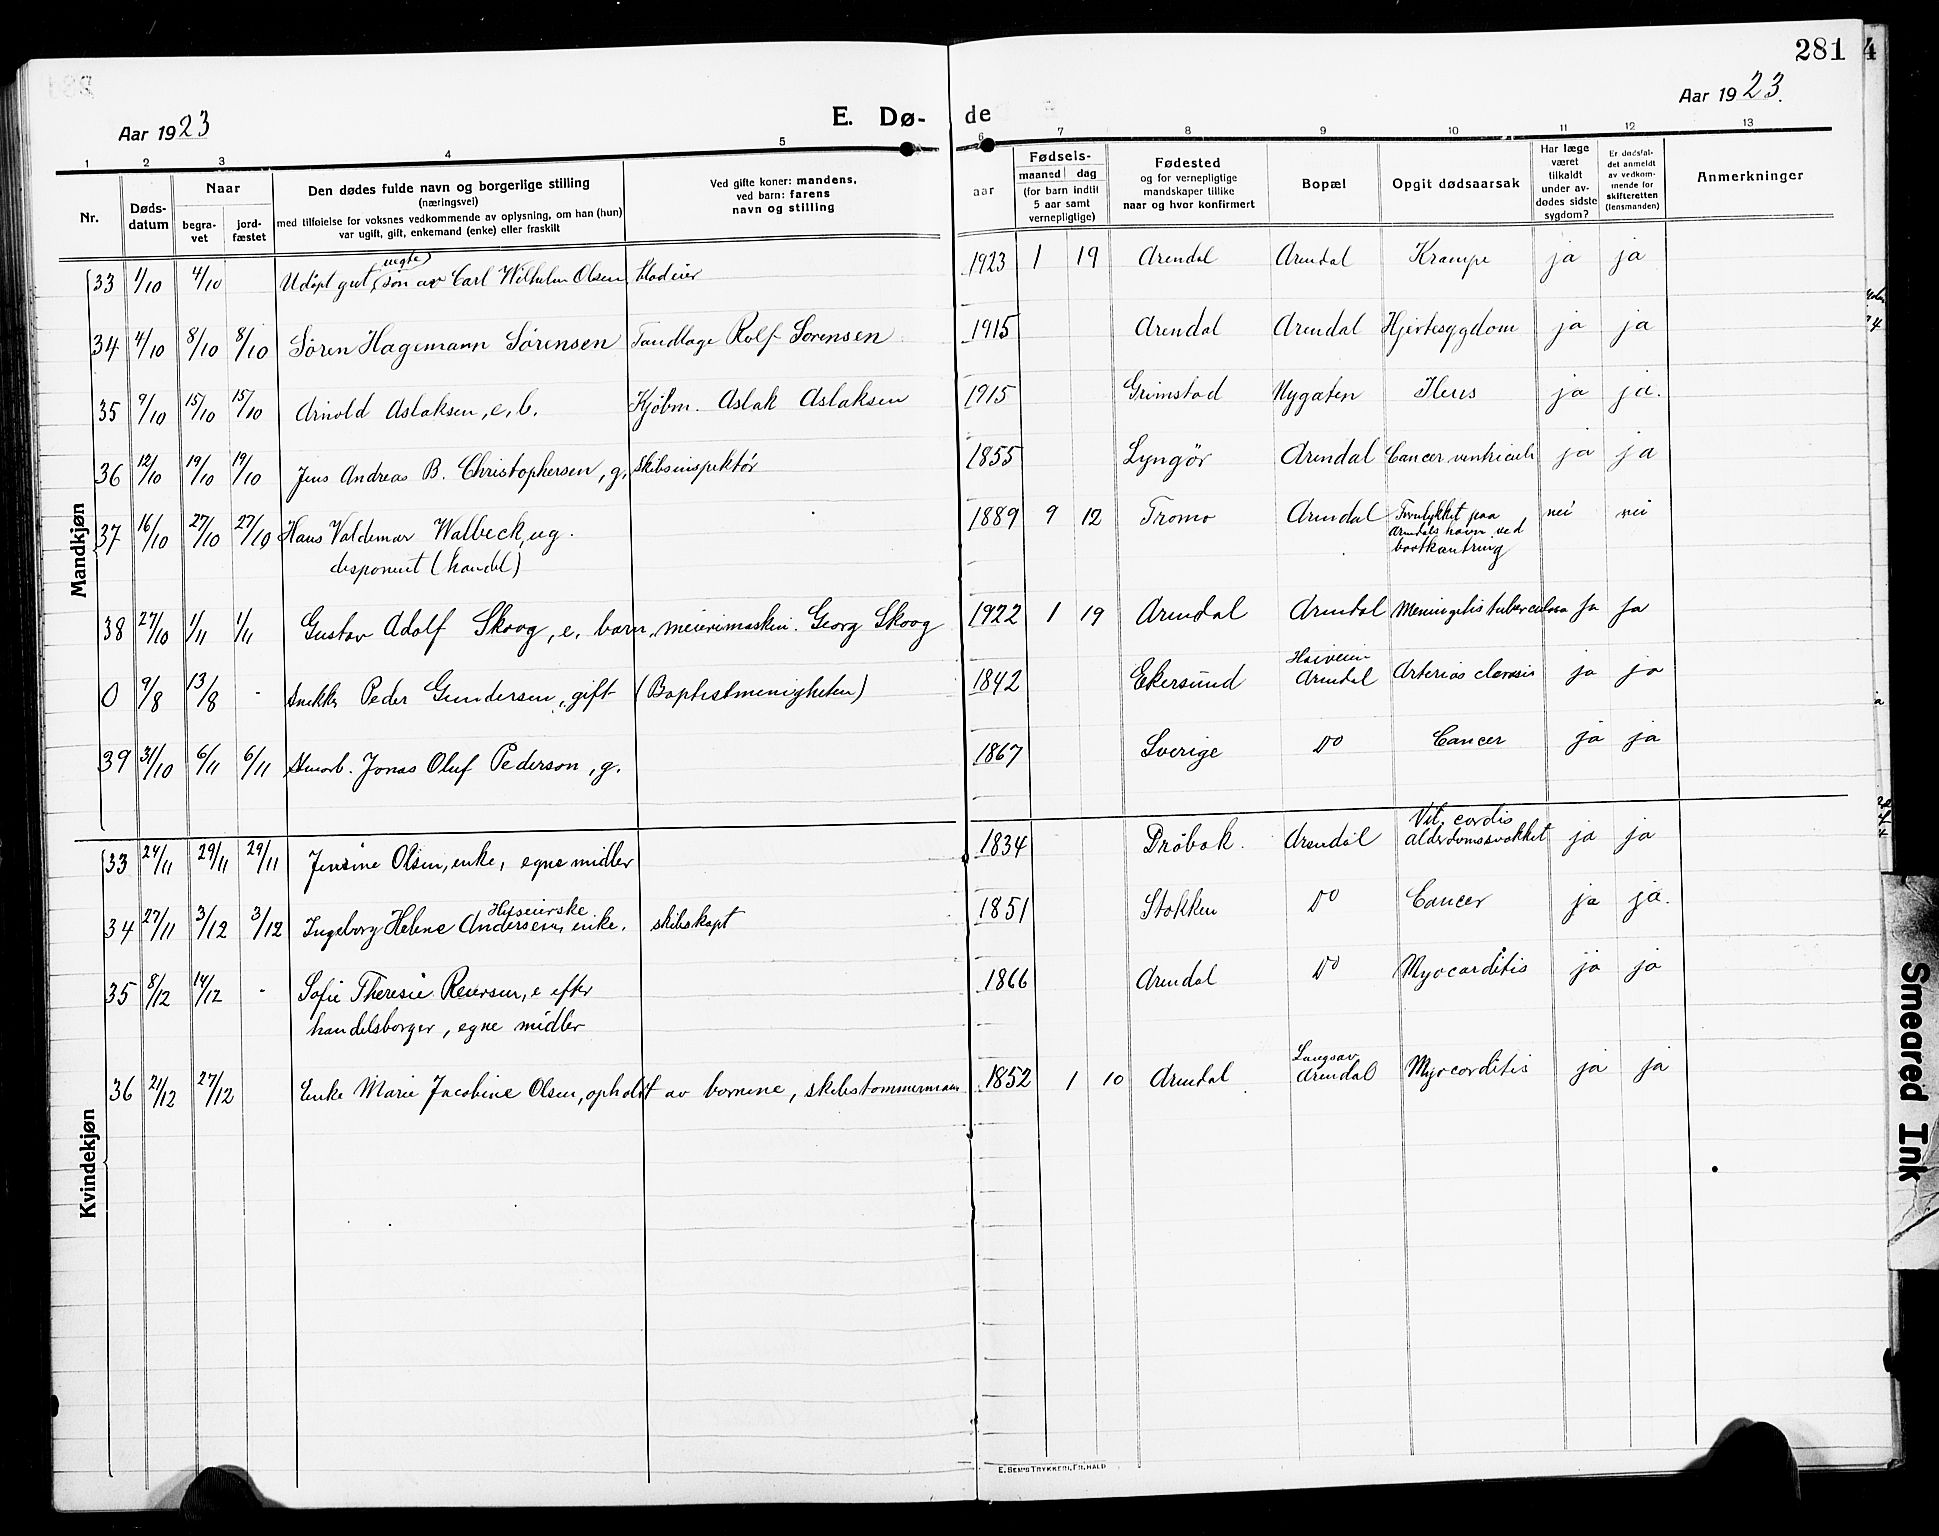 281
4
Aar 1923
E. Dø- de
Aar 1923.
1 2 3 4 5 6 7 8 9 10 11 12 13
Nr.
Døds-
datum
Naar
begra-
vet
jord-
fæstet
Den dødes fulde navn og borgerlige stilling
(næringsvei)
med tilføielse for voksnes vedkommende av oplysning, om han (hun)
var ugift, gift, enkemand (enke) eller fraskilt
Ved gifte koner: mandens,
ved barn: farens
navn og stilling
Fødsels-
aar
maaned dag
(for barn indtil
5 aar samt
vernepligtige)
Fødested
og for vernepligtige
mandskaper tillike
naar og hvor konfirmert
Bopæl
Opgit dødsaarsak
Har læge
været
tilkaldt
under av-
dødes sidste
sygdom?
Er dødsfal-
det anmeldt
av vedkom-
mende for
skifteretten
(lensmanden)
Anmerkninger
Mandkjøn
33 1/10 4/10 Udøpt gut, søn av Carl Wilhelm Olsen, 1923 1 19 Arendal Arendal Krampe ja ja
34 4/10 8/10 8/10 Søren Hagemann Sørensen Tandlæge Rolf Sørensen 1915 Arendal Arendal Hjertesygdom ja ja
35 9/10 15/10 15/10 Arnold Aslaksen, e. b. Kjøbm. Aslak Aslaksen 1915 Grimstad Nygaten Ileus ja ja.
36 12/10 19/10 19/10 Jens Andreas B. Christophersen, g. skibsinspektør 1855 Lyngør Arendal Cancer ventriculi ja ja
37 16/10 27/10 27/10 Hans Valdemar Walbeck, ug. 1889 9 12 Tromø Arendal Forulykket paa nei nei
Arendals havn ved
disponent (handel) baatkantring
38 27/10 1/11 1/11 Gustav Adolf Skoog, e. barn, meierimaskin. Georg Skoog 1922 1 19 Arendal Arendal Meningitis tuberculosa ja ja
0 9/8 13/8 - Snekker Peder Gundersen, gift (Baptistmenigheten) 1842 Ekersund Arendal ja ja
39 31/10 6/11 6/11 Jonas Oluf Pederson, g. 1867 Sverige Do Cancer ja ja
Kvindekjøn
Vit. cordis
33 24/11 29/11 29/11 Jensine Olsen, enke, egne midler 1834 Drøbak. Arendal alderdomssvakket ja ja
Huseierske
34 27/11 3/12 3/12 Ingeborg Helene Andersen, enke. skibskapt 1851 Stokken Do Cancer ja ja.
35 8/12 14/12 - Sofie Theresie Reiersen, e efter 1866 Arendal Do Myocarditis ja ja
handelsborger, egne midler
Langsæv
36 21/12 27/12 Enke Marie Jacobine Olsen, opholdt av børnene, skibstømmermann 1852 1 10 Arendal Arendal Myocarditis ja ja
E. Sem's Trykkeri, Fr.hald
Smeared Ink